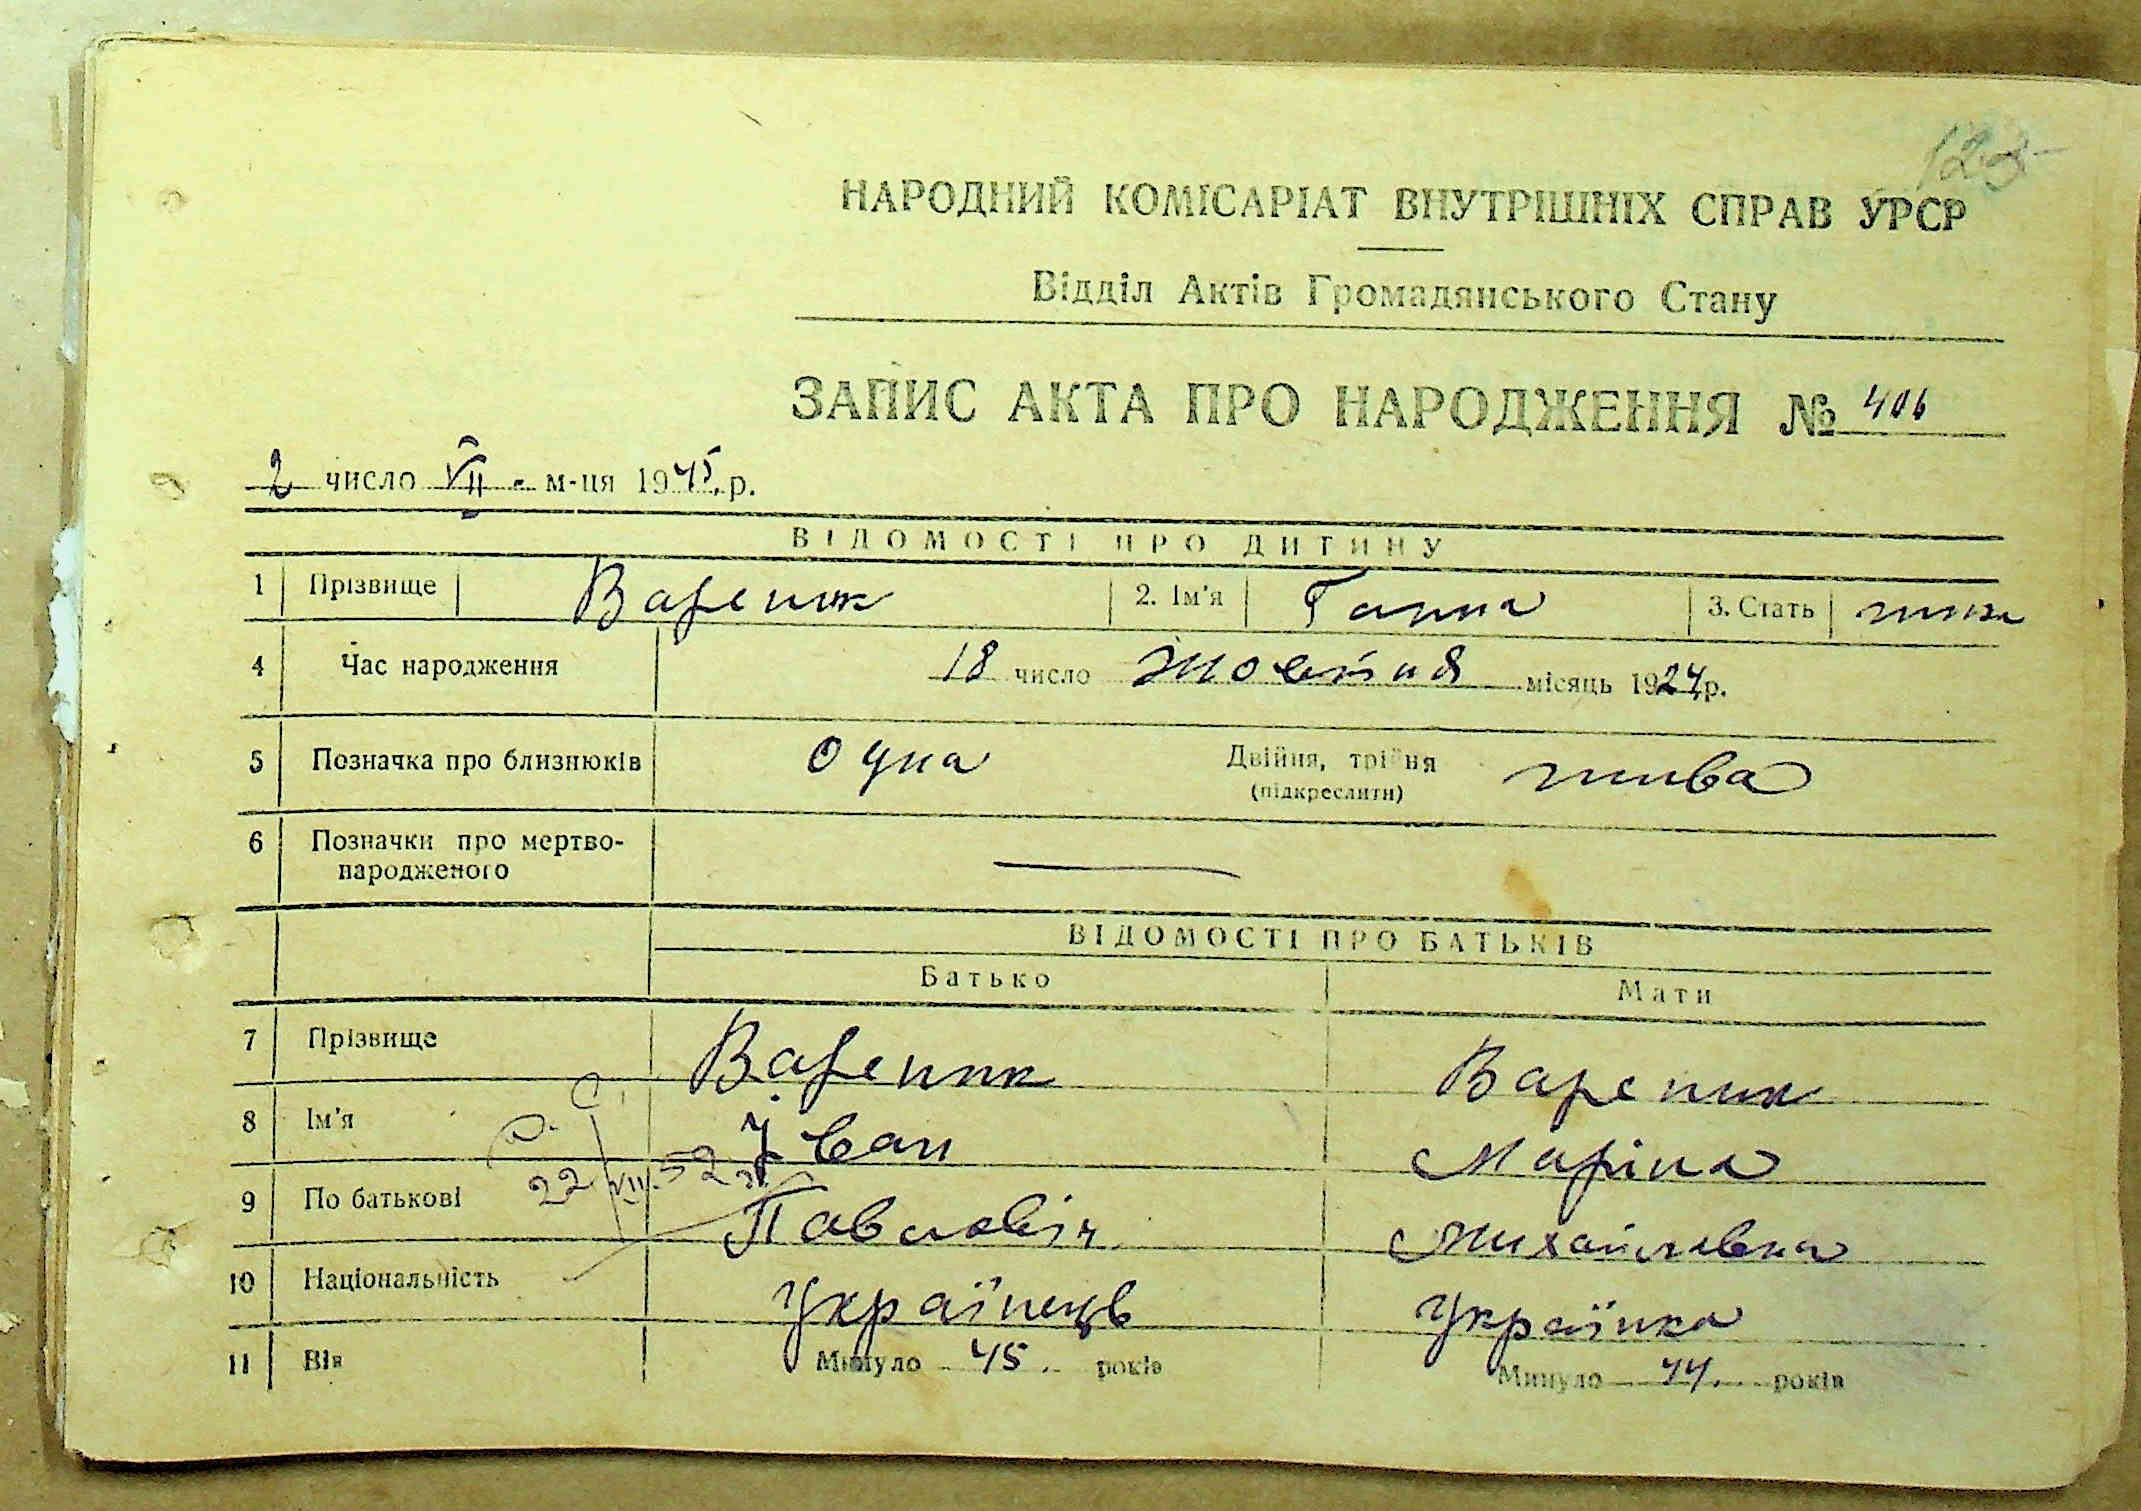 123
НАРОДНИЙ КОМІСАРІАТ ВНУТРІШНІХ СПРАВ УРСР
Відділ Актів Громадянського Стану
ЗАПИС АКТА ПРО НАРОДЖЕННЯ № 406
2 число VII - м-ця 1945 р.
ВІДОМОСТІ ПРО ДИТИНУ
1 Прізвище Вареник 2. Ім'я Ганна 3. Стать жін
4 Час народження 18 число Жовтня місяць 1924 р.
5 Позначка про близнюків одна Двійня, трійня жива
(підкреслити)
6 Позначки про мертво-
народженого
ВІДОМОСТІ ПРО БАТЬКІВ
Батько Мати
7 Прізвище Вареник Вареник
8 Ім'я Іван Маріна
22/VII.52
9 По батькові Павловіч Михайловна
10 Національність Українець Українка
11 Вік Минуло 45 років Минуло 44 років